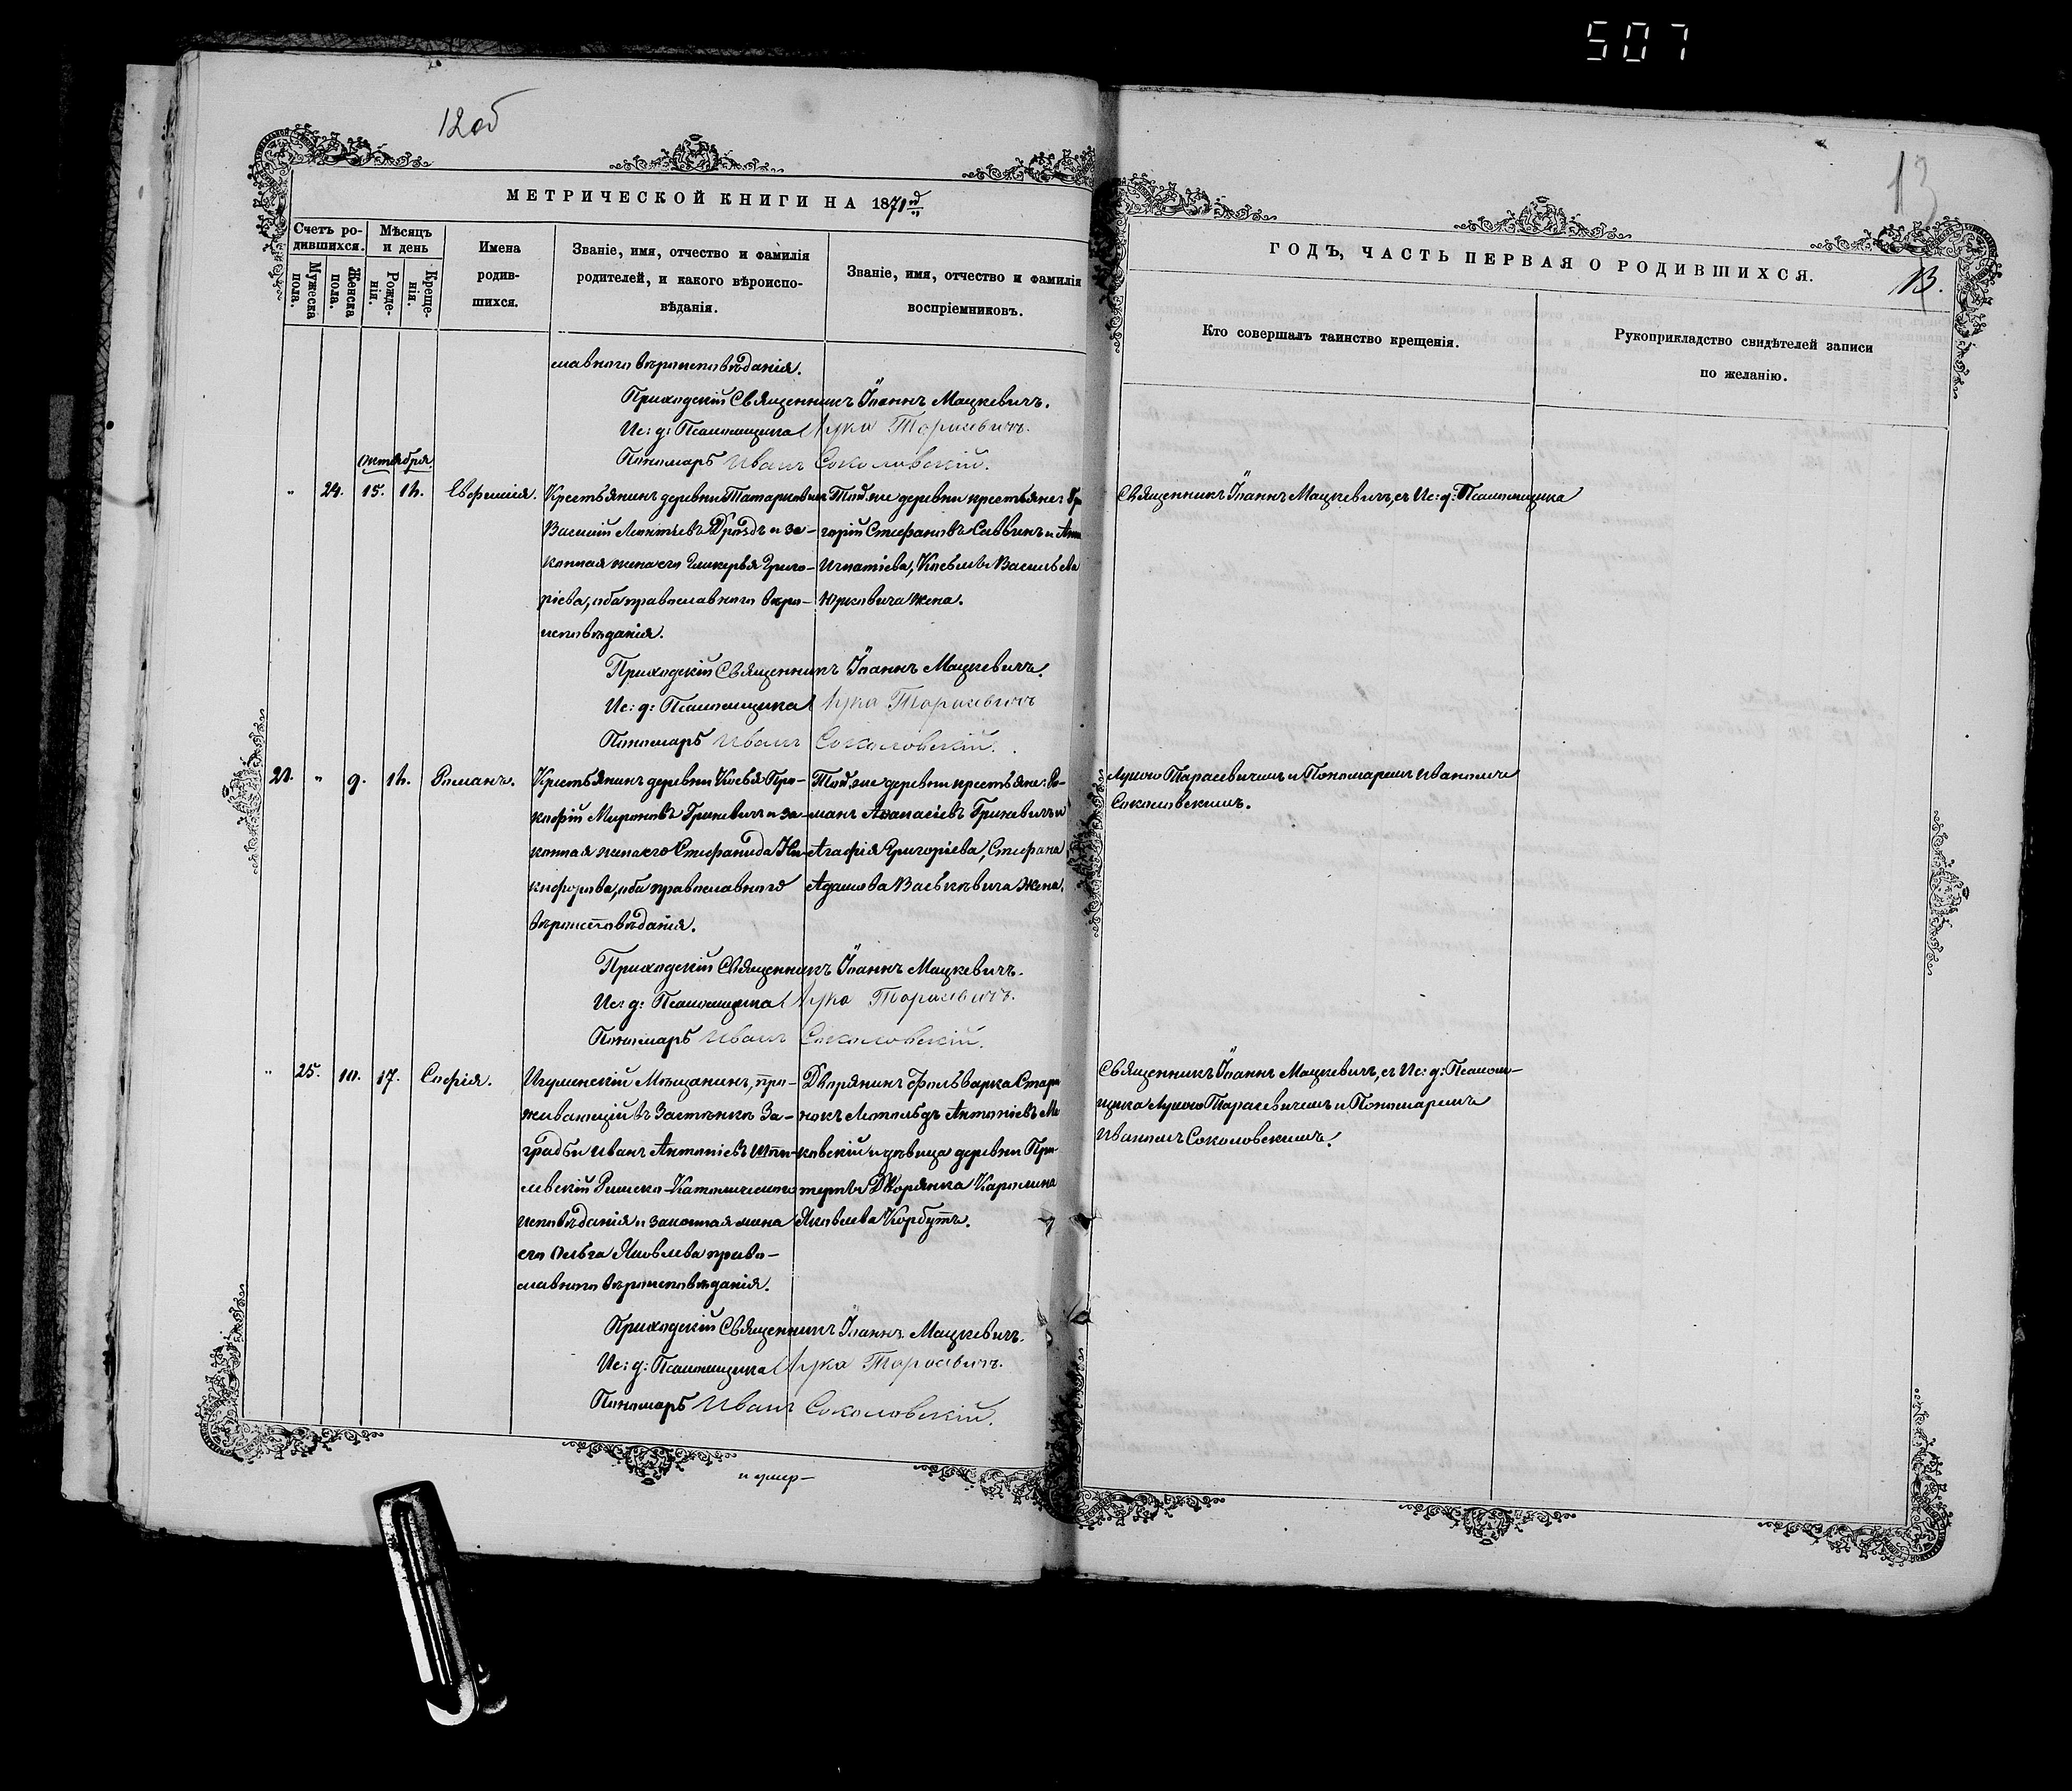 507
12об
МЕТРИЧЕСКОЙ КНИГИ НА 1871й
Счетъ родившихся.
Мужеска пола.
Женска пола.
Мѣсяцъ и день
Рожденія.
Крещенія.
Имена родившихся.
Званіе, имя, отчество и фамилія родителей, и какого вѣроисповѣданія.
Званіе, имя, отчество и фамилія воспріемниковъ.
славнаго вѣроисповѣданія.
Приходскій Священникъ Іоаннъ Мацкевичъ.
Ис: д: Псаломщика Лука Тарасевичъ.
Пономарь Иванъ Соколовскій.
Октября.
" 24. 15. Евфимія.
Крестьянинъ деревни
Василій Дроздъ и за-
конная жена его Гликерья Григо-
ріева, оба православнаго вѣро-
исповѣданія.
Той же деревни крестьяне: Гри
горій Стефановъ и Анна
Игнатіева, Василья
Юрковича жена.
Приходскій Священникъ Іоаннъ Мацкевичъ.
Ис: д: Псаломщика Лука Тарасевичъ
Пономарь Иванъ Соколовскій.
" 9. Романъ.
Крестьянинъ деревни Про-
кофій Мироновъ Гриневичъ и за-
конная жена его Стефанида Ни-
кифорова, оба православнаго
вѣроисповѣданія.
Той же деревни крестьяне: Ро-
манъ Аѳанасіевъ Гриневичъ и
Агафія Григоріева, Стефана
Адамова Васьковича жена.
Приходскій Священникъ Іоаннъ Мацкевичъ.
Ис: д: Псаломщика Лука Тарасевичъ.
Пономарь Иванъ Соколовскій.
" 25. 10. 17. Софія.
Игуменскій Мѣщанинъ, про-
живающій въ Застѣнкѣ За-
Иванъ Антоніевъ
Римско-Католическаго
исповѣданія и законная жена
его Ольга Яковлева право-
славнаго вѣроисповѣданія.
Дворянинъ фольварка
Антоніевъ
и дѣвица деревни
Дворянка Каролина
Яковлева Корбутъ.
Приходскій Священникъ Іоаннъ Мацкевичъ.
Ис: д: Псаломщика Лука Тарасевичъ.
Пономарь Иванъ Соколовскій.
13
ГОДЪ, ЧАСТЬ ПЕРВАЯ О РОДИВШИХСЯ.
13.
Кто совершалъ таинство крещенія.
Рукоприкладство свидѣтелей записи
по желанію.
Священникъ Іоаннъ Мацкевичъ, съ Ис: д: Псаломщика
Лукою Тарасевичемъ и Пономаремъ Иваномъ
Соколовскимъ.
Священникъ Іоаннъ Мацкевичъ, съ Ис: д: Псалом-
щика Лукою Тарасевичемъ и Пономаремъ
Иваномъ Соколовскимъ.